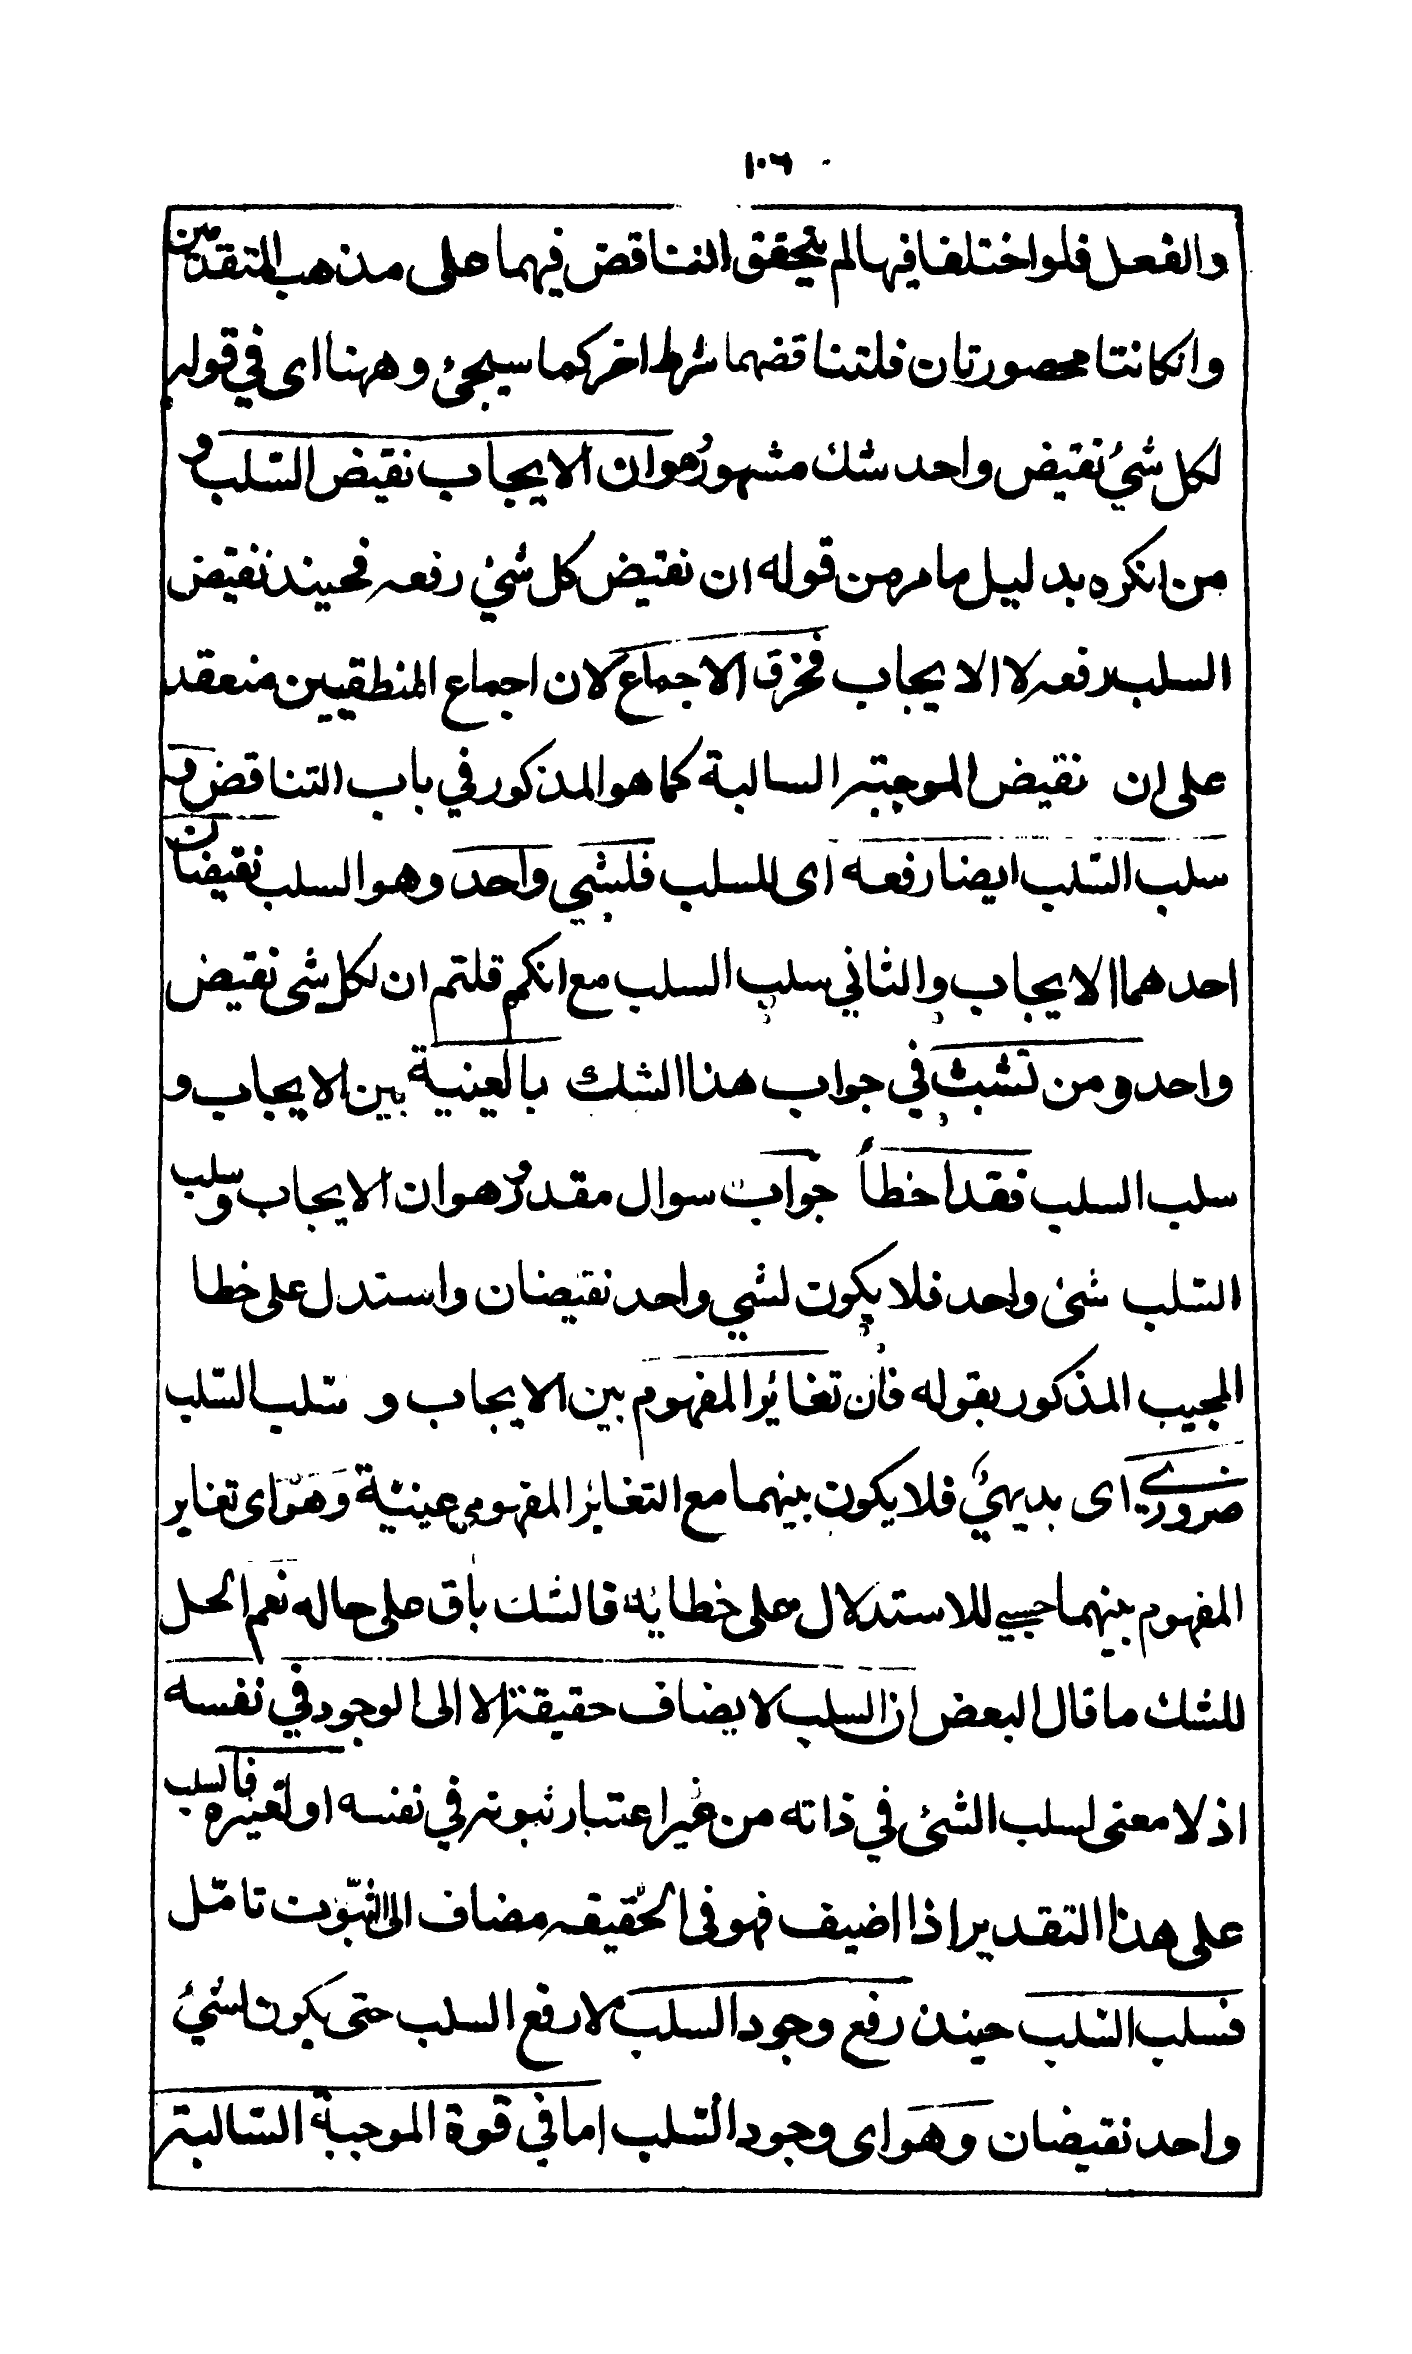 ١٠٦
والفعل فلو اختلفا فيها لم يتحقق التناقض فيهما على مذهب المتقدمين
وانكانتا محصورتان فلتناقضهما شرط اخر كما سيجئ وههنا اى في قوله
لكل شيء نقيض واحد شك مشهور وهو ان الايجاب نقيض السلب و
من انكره بدليل ما مر من قوله ان نقيض كل شيء رفعه فحينذ نقيض
السلب رفعه لا الايجاب فخرق الاجماع لان اجماع المنطقيين منعقد
على ان نقيض الموجبة السالبة كما هو المذكور في باب التناقض و
سلب السّلب ايضا رفعه اى للسلب فلشي واحد وهو السلب نقيضان
احدهما الايجاب والثاني سلب السلب مع انكم قلتم ان لكل شى نقيض
واحد ومن تشبث في جواب هذا الشك بالعينية بين الايجاب و
سلب السلب فقد اخطأ جواب سوال مقدر وهو ان الايجاب وسلب
السّلب شئ واحد فلا يكون لشي واحد نقيضان واستدل على خطا
المجيب المذكور بقوله فان تغائر المفهوم بين الايجاب و سّلب السّلب
ضرورى اى بديهيٌ فلا يكون بينهما مع التغائر المفهومى عينيّة وهو اى تغاير
المفهوم بينهما حسبي للاستدلال على خطايه فالشك باق على حاله نعم الحل
للشك ما قال البعض ان السلب لا يضاف حقيقة الا الى الوجود في نفسه
اذ لا معنى لسلب الشئ في ذاته من غير اعتبار ثبوته في نفسه او لغيره فالسلب
على هذا التقدير اذا اضيف فهو فى الحقيقه مضاف الى الثبوت تامّل
فسلب السّلب حينذ رفع وجود السلب لا رفع السلب حتى يكون لشيء
واحد نقيضان وهو اى وجود السّلب اما في قوة الموجبة السّالبة